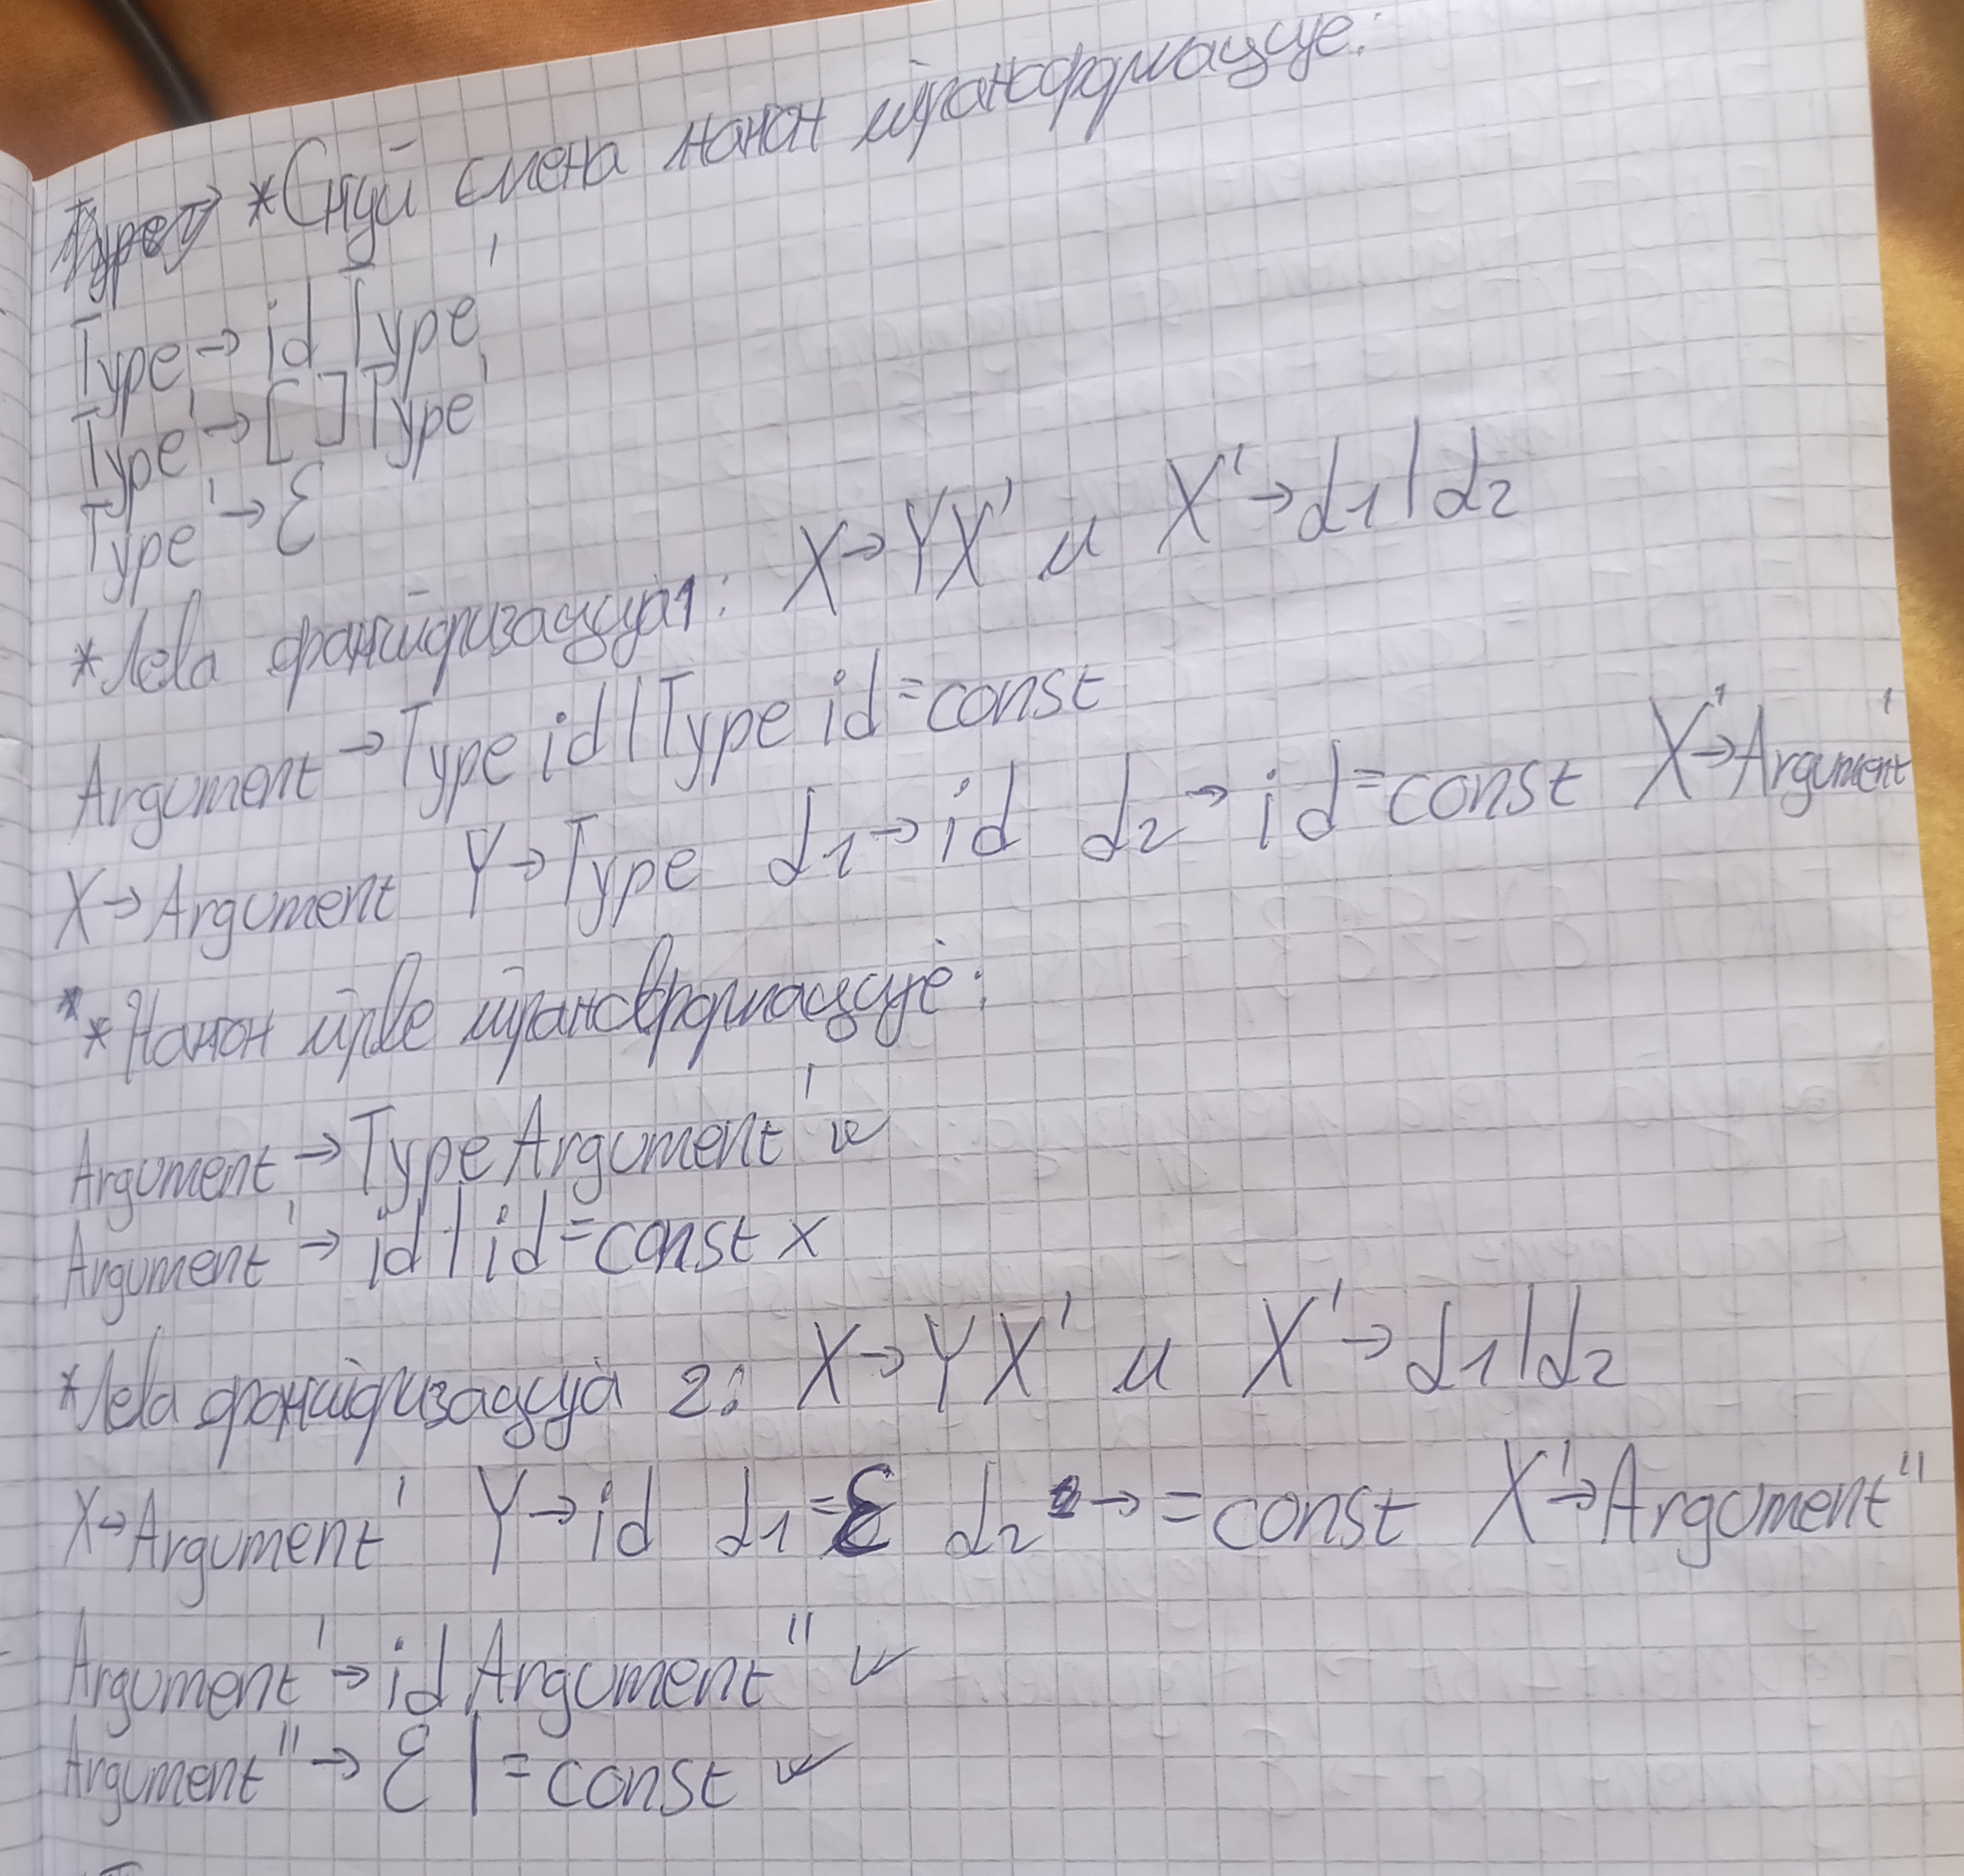 *Скуп смена након трансформације:
Type → id Type'
Type' → [ ] Type'
Type' → ε
*Лева факторизација 1: X → YX' и X' → α1 | α2
Argument → Type id | Type id = const
X → Argument Y → Type α1 → id α2 → id = const X' → Argument'
**Након прве трансформације:
Argument → Type Argument' ✓
Argument' → id | id = const x
*Лева факторизација 2: X → YX' и X' → α1 | α2
X → Argument' Y → id α1 = ε α2 → = const X' → Argument"
Argument' → id Argument" ✓
Argument" → ε | = const ✓